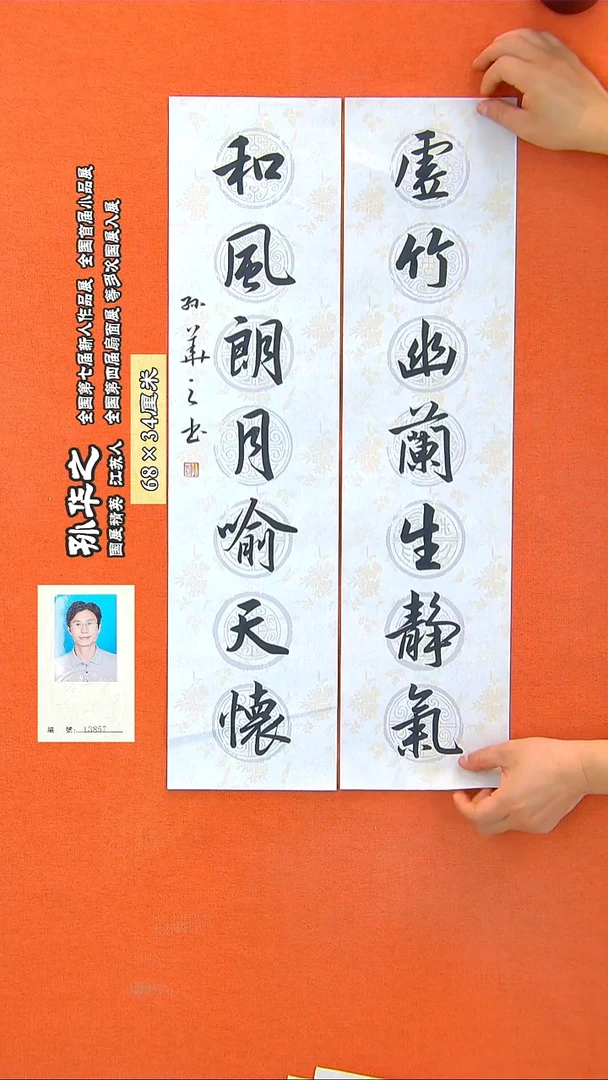 虚竹幽蘭生靜氣
和風朗月喻天懷
孙華之书
孙华之
国展精英 江苏人
全国第七届新人作品展 全国首届小品展
全国第四届扇面展 等多次国展入展
68×34厘米
編 號: 13857